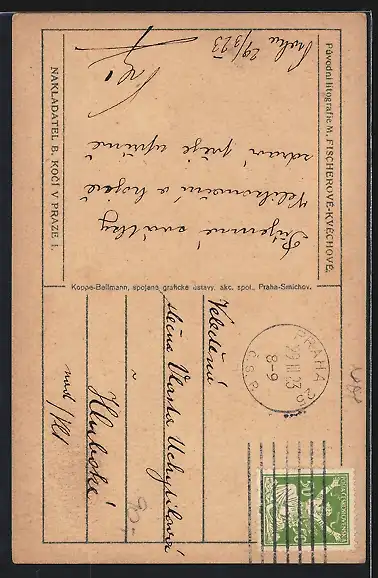 Původní litografie M. FISCHEROVÉ-KVĚCHOVÉ.
Praha 29/3 23
Příjemné svátky
Velikonoční a hojně
zdraví přeje upřímně
NAKLADATEL B. KOČÍ V PRAZE I.
Koppe-Bellmann, spojené grafické ústavy, akc. spol., Praha-Smíchov.
PRAHA 25
29.III.23
8-9
Č.S.R.
50
Velectěná
slečna Vlasta
v
Hluboké
nad /Vlt
90,-